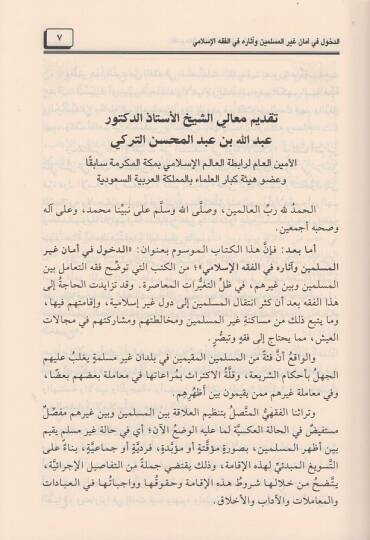 الدخول في أمان غير المسلمين وآثاره في الفقه الإسلامي
٧
تقديم معالي الشيخ الأستاذ الدكتور
عبد الله بن عبد المحسن التركي
الأمين العام لرابطة العالم الإسلامي بمكة المكرمة سابقًا
وعضو هيئة كبار العلماء بالمملكة العربية السعودية
الحمدُ لله ربِّ العالمين، وصلَّى الله وسلَّم على نبيِّنا محمد، وعلى آله
وصحبه أجمعين.
أما بعد: فإنَّ هذا الكتاب الموسوم بعنوان: «الدخول في أمان غير
المسلمين وآثاره في الفقه الإسلامي»؛ من الكتب التي توضِّح فقه التعامل بين
المسلمين وبين غيرهم، في ظلِّ التغيُّرات المعاصرة. وقد تزايدت الحاجةُ إلى
هذا الفقه بعد أن كثر انتقال المسلمين إلى دول غير إسلامية، وإقامتهم فيها،
وما يتبع ذلك من مساكنةِ غير المسلمين ومخالطتهم ومشاركتهم في مجالات
العيش، مما يحتاج إلى فقهٍ وتبصُّرٍ.
والواقعُ أنَّ فئةً من المسلمين المقيمين في بلدان غير مسلمةٍ يغلب عليهم
الجهلُ بأحكام الشريعة، وقلَّةُ الاكتراث بمُراعاتها في معاملة بعضهم بعضًا،
وفي معاملة غيرهم ممن يقيمون بين أَظْهُرِهِم.
وتراثنا الفقهيُّ المتَّصلُ بتنظيم العلاقة بين المسلمين وبين غيرهم مفصَّلٌ
مستفيضٌ في الحالة العكسيَّة لما عليه الوضعُ الآن؛ أي في حالة غير مسلم يقيم
بين أظهر المسلمين، بصورةٍ مؤقَّتةٍ أو مؤبَّدةٍ، فرديَّةٍ أو جماعيَّةٍ، بناءً على
التَّسويغ المبدئيِّ لهذه الإقامة، وذلك يقتضي جملةً من التفاصيل الإجرائيَّة،
يتَّضحُ من خلالها شروطُ هذه الإقامة وحقوقُها وواجباتُها في العبادات
والمعاملات والآداب والأخلاق.